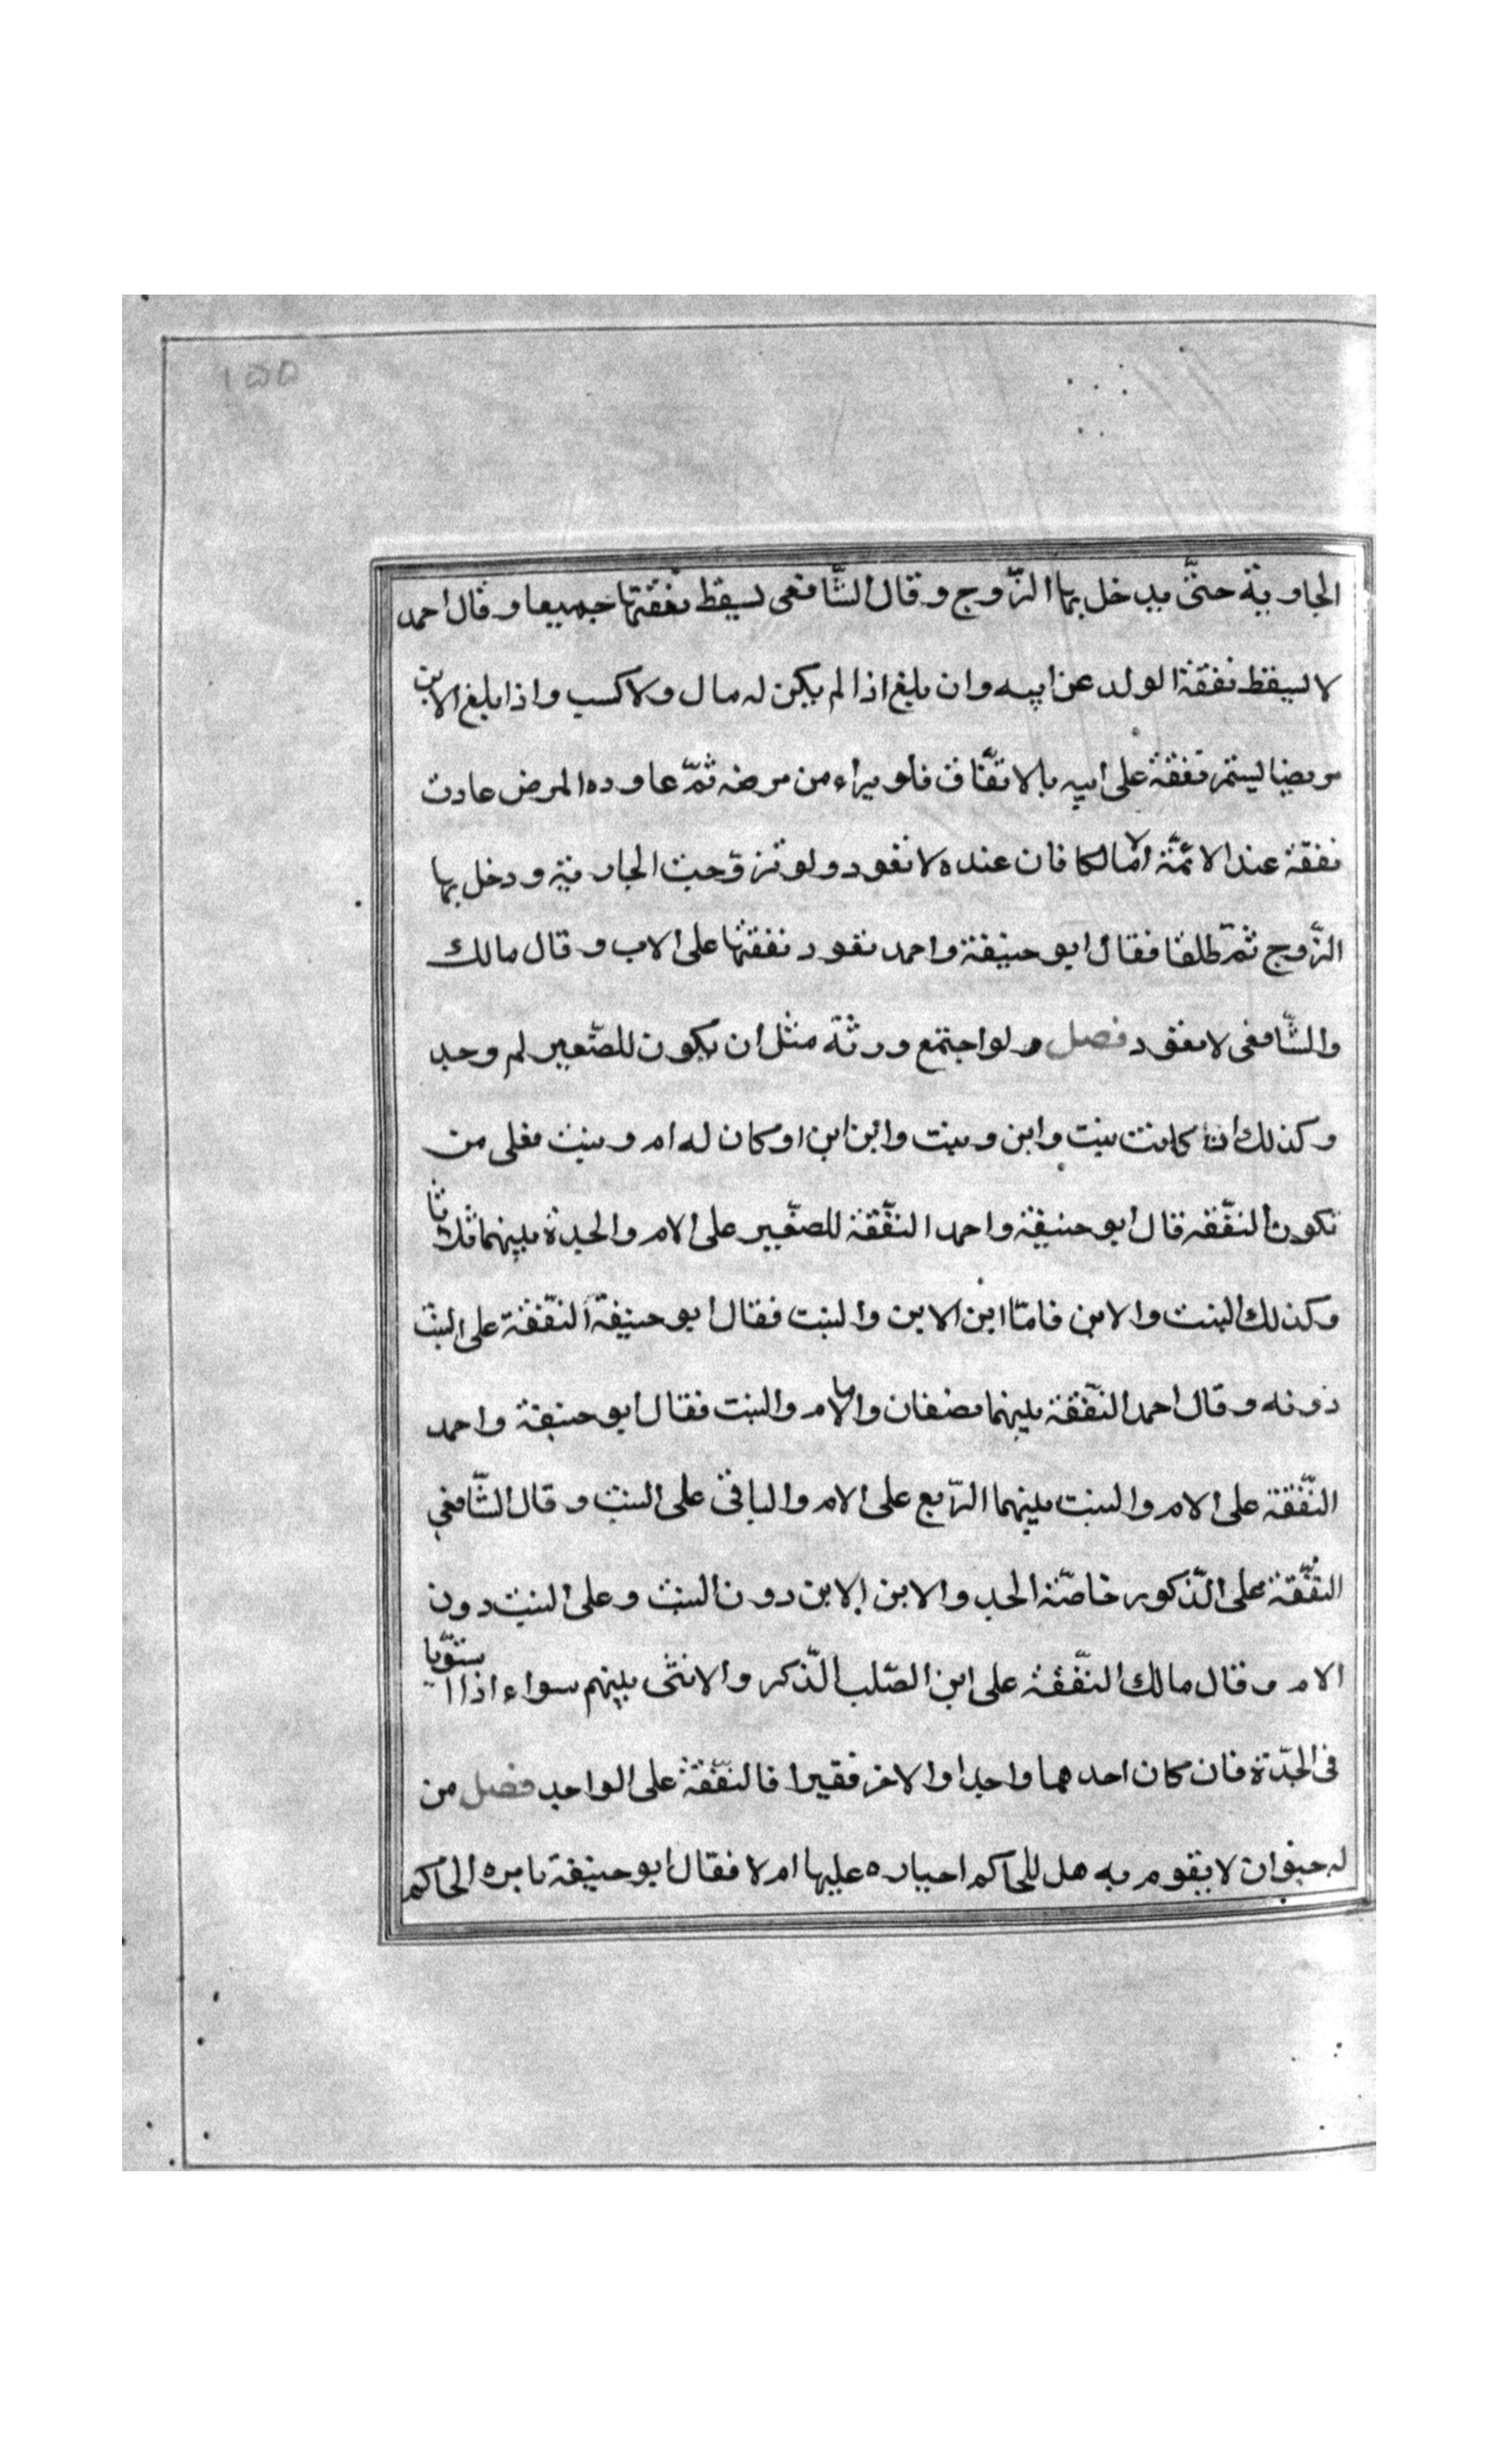 ١٥٥
الجاورية حتّى يدخل بها الزّوج وقال الشّافعى لسيقط نفقتها جميعا وقال احمد
لا لسيقط نفقة الولد عن ابيه وان بلغ اذا لم يكن له مال ولا كسب واذا بلغ الابن
مريضا ليستمر نفقة على ابيه بالاتّفاق فلو براء من مرضه ثمّ عاوده المرض عادت
نفقة عند الائمّة الّا مالكا فان عنده لا نعود ولو تزوّجت الجارية ودخل بها
الزّوج ثمّ طلقا فقال ابو حنيفة واحمد نعود نفقتها على الاب وقال مالك
والشّافعى لا نعود فصل ولو اجتمع ورثة مثل ان يكون للصّغير لم وجد
وكذلك ان كانت بنت وابن وبنت وابن ابن او كان له ام وبنت فعلى من
تكون النفّقه قال ابو حنيفة واحمد النفّقة للصّغير على الام والجدة بينهما ثلاثا
وكذلك البنت والابن فامّا ابن الابن والبنت فقال ابو حنيفة النفّقة على البنت
دونه وقال احمد النفّقة بينهما نصفان واما الام والبنت فقال ابو حنيفة واحمد
النفّقة على الام والبنت بينهما الرّبع على الام والباقى على البنت وقال الشّافعى
النفّقة على الذّكور خاصّة الجد والابن الابن دون البنت وعلى البنت دون
الام وقال مالك النفّقة على ابن الصّلب الذّكر والانثى بينهم سواء اذا استويا
فى الجدّة فان كان احدهما واجدا والاخر فقيرا فالنفّقة على الواجد فصل من
له حيوان لا يقوم به هل للحاكم اجباره عليها ام لا فقال ابو حنيفة يامره الحاكم